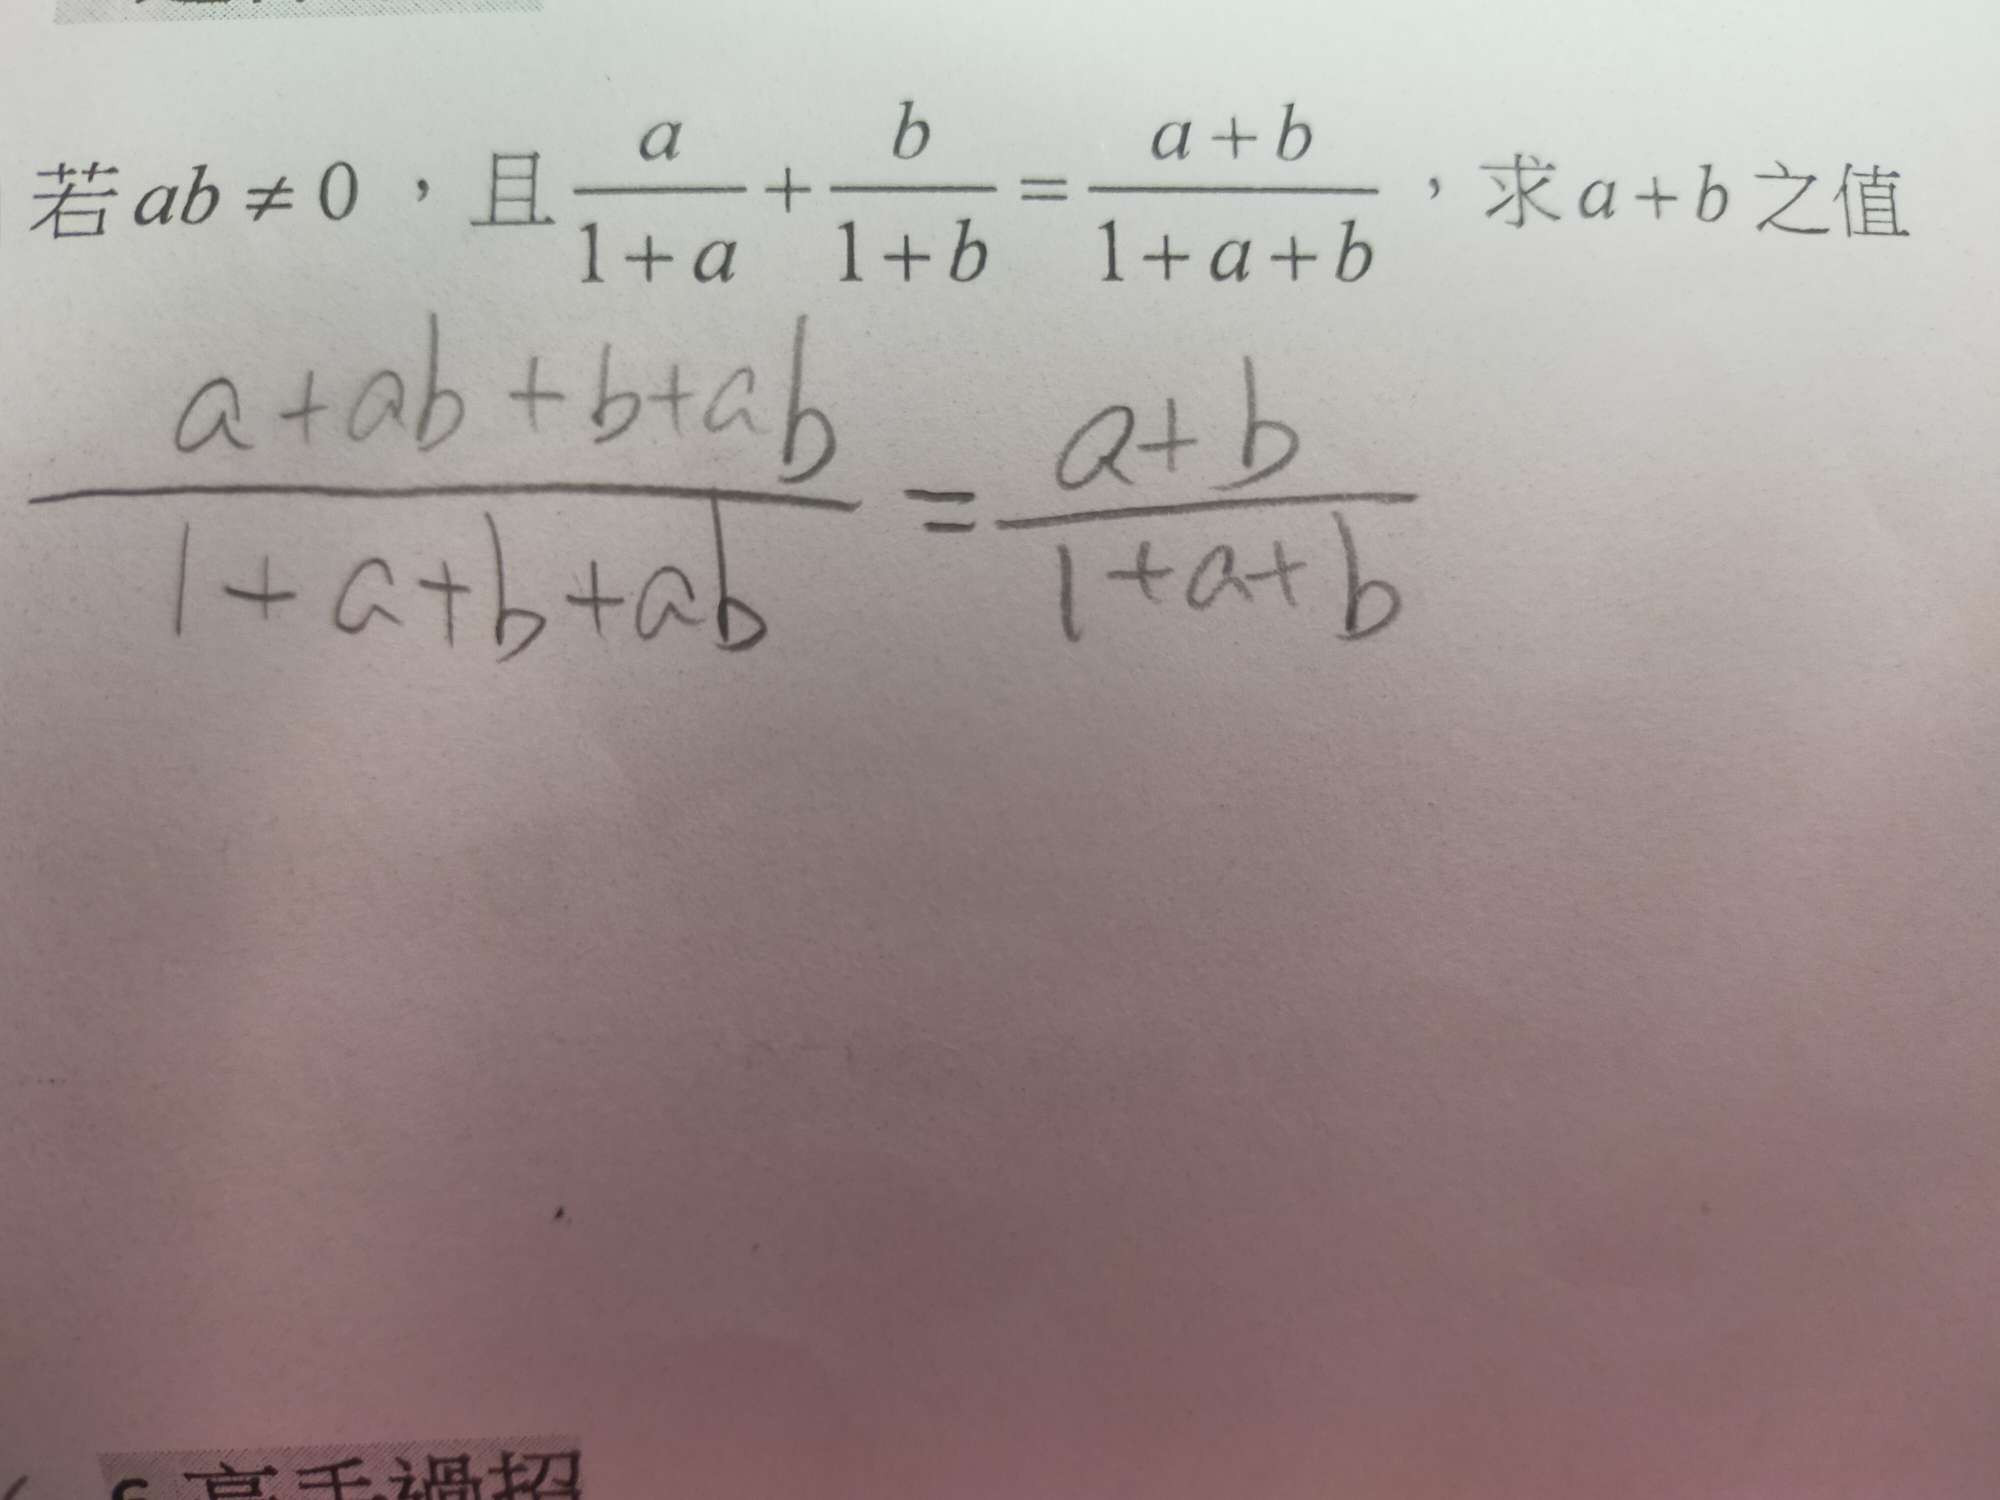 若 ab ≠ 0，且 a/(1+a) + b/(1+b) = (a+b)/(1+a+b)，求 a+b 之值
(a+ab+b+ab)/(1+a+b+ab) = (a+b)/(1+a+b)
6 高手過招